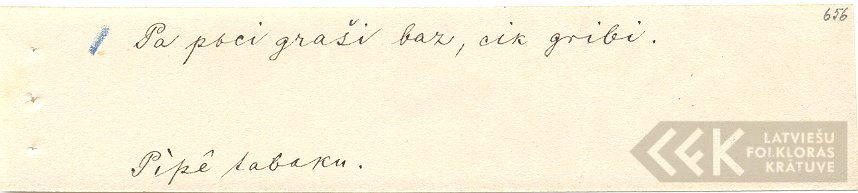 656
Pa poci graši baz, cik gribi.
Pìpê tabaku.
LATVIEŠU
FOLKLORAS
KRĀTUVE